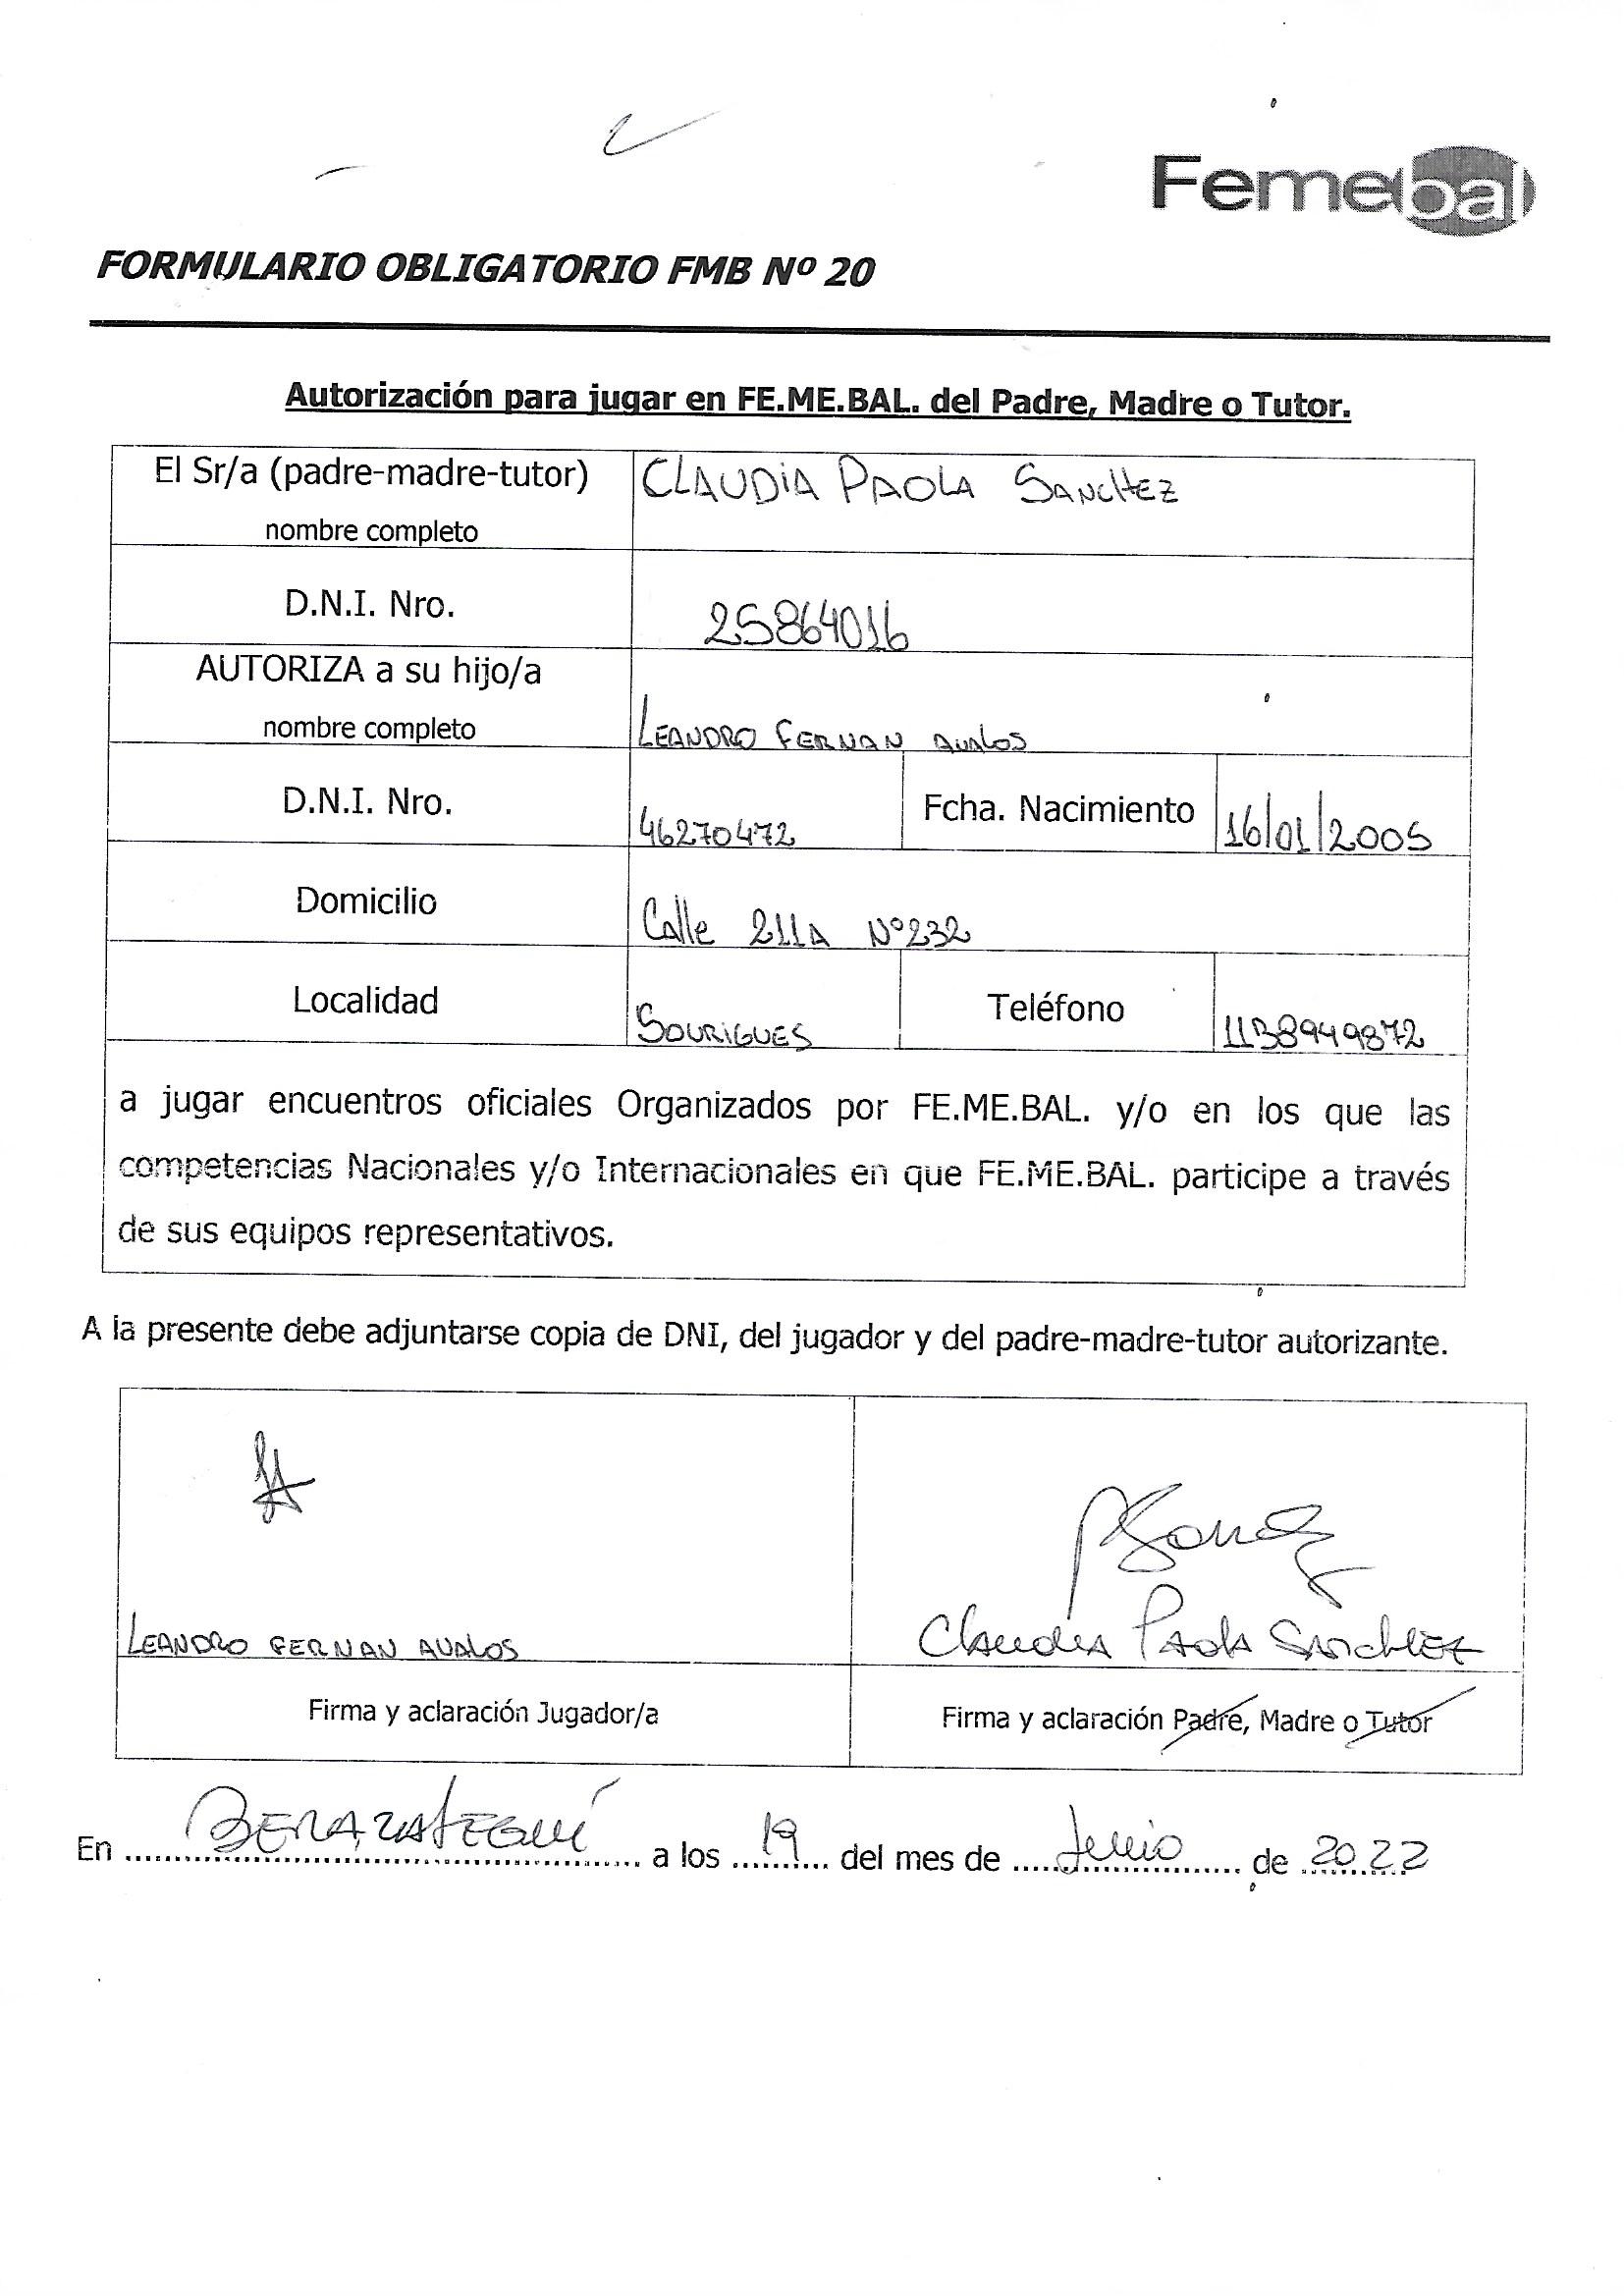 Femebal
FORMULARIO OBLIGATORIO FMB Nº 20
Autorización para jugar en FE.ME.BAL. del Padre, Madre o Tutor.
El Sr/a (padre-madre-tutor) CLAUDIA PAOLA SANCHEZ
nombre completo
D.N.I. Nro. 25864016
AUTORIZA a su hijo/a
nombre completo LEANDRO FERNAN AVALOS
D.N.I. Nro. 46270472 Fcha. Nacimiento 16/01/2005
Domicilio Calle 211A Nº232
Localidad SOURIGUES Teléfono 1138949872
a jugar encuentros oficiales Organizados por FE.ME.BAL. y/o en los que las
competencias Nacionales y/o Internacionales en que FE.ME.BAL. participe a través
de sus equipos representativos.
A la presente debe adjuntarse copia de DNI, del jugador y del padre-madre-tutor autorizante.
LEANDRO FERNAN AVALOS Claudia Paola Sanchez
Firma y aclaración Jugador/a Firma y aclaración Padre, Madre o Tutor
En BERAZATEGUÍ a los 19 del mes de Junio de 2022